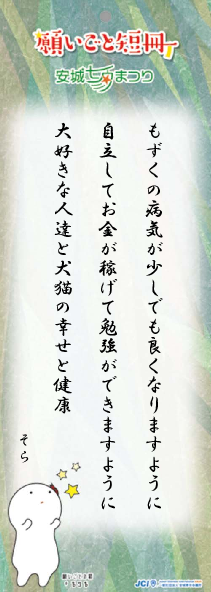 願いごと短冊
安城七夕まつり
もずくの病気が少しでも良くなりますように
自立してお金が稼げて勉強ができますように
大好きな人達と犬猫の幸せと健康
そら
JCI